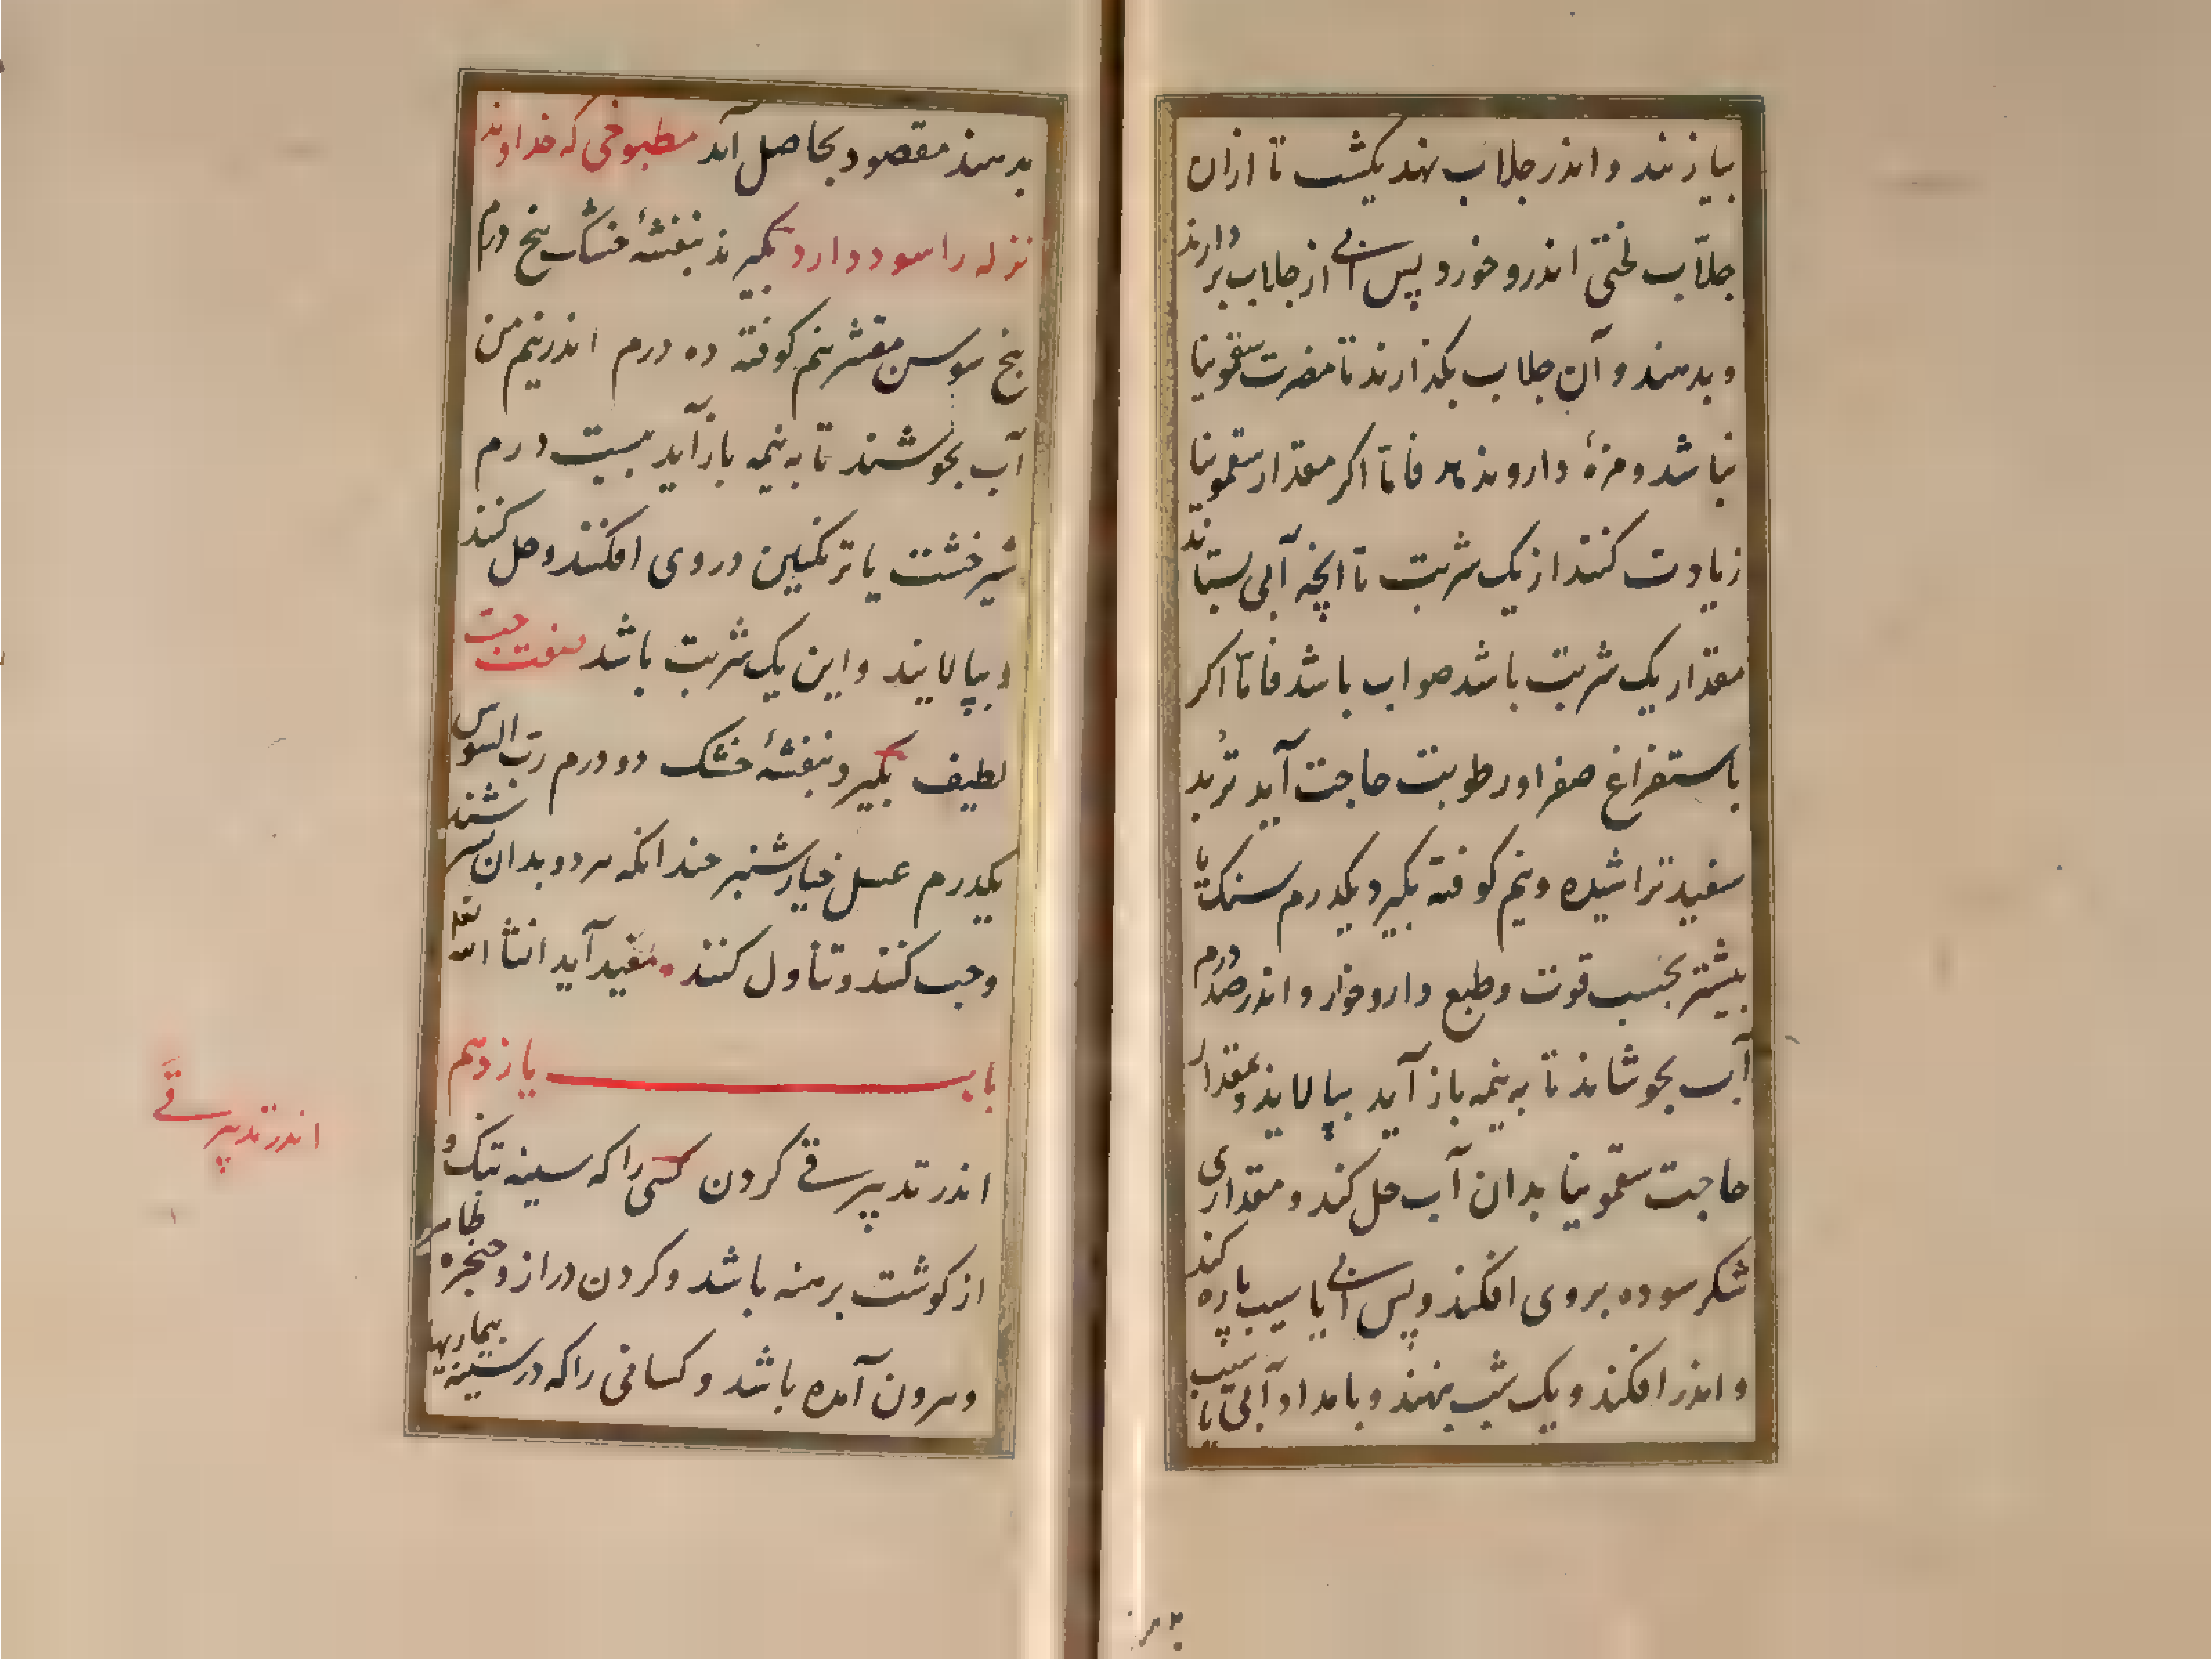 بیازنند و اندر جلاب نهند یکشب تا ازان
جلاّب لختی اندرو خورد پس آبی از جلاب بردارند
و بدهند و آن جلاب بگذارند تا مضرت سقمونیا
نباشد و مزهٔ دارو ندهد فامّا اکر مقدار سقمونیا
زیادت کنند از یک شربت تا انچه آبی بستاند
مقدار یک شربت باشد صواب باشد فامّا اکر
باستفراغ صفرا و رطوبت حاجت آید تُربد
سفید تراشیده و نیم کوفته بگیرد یکدرم سنک یا
بیشتر بحسب قوت و طبع داروخوار و اندر صد درم
آب بجوشاند تا به نیمه باز آید بپالاید و بمقدار
حاجت سقمونیا بدان آب حل کند و مقداری
شکر سوده بروی افکند و پس آبی یا سیب پاره کند
و اندر افکند و یک شب بنهند و بامداد آبی یا سیب
بدهند مقصود بحاصل آید مطبوخی که خداوند
نزله را سود دارد بگیرند بنفشهٔ خشک پنج درم
بیخ سوسن مقشر نیم کوفته ده درم اندر نیم من
آب بجوشند تا به نیمه باز آید بیست درم
شیرخشت یا ترنگبین در وی افکنند و حل کنند
و بپالایند و این یک شربت باشد صفت حبّ
لطیف بگیرد بنفشهٔ خشک دو درم ربّ السوس
یکدرم عسل خیارشنبر چندانکه هر دو بدان سرشند
و حب کنند و تناول کنند مفید آید انشا الله تعالی
باب یازدهم
اندر تدبیر قے کردن کسی را که سینه تنک و
از کوشت برهنه باشد و کردن دراز و حنجره ظاهر
و بیرون آمده باشد و کسانی را که در سینه بیماریها
اندر تدبیر قے